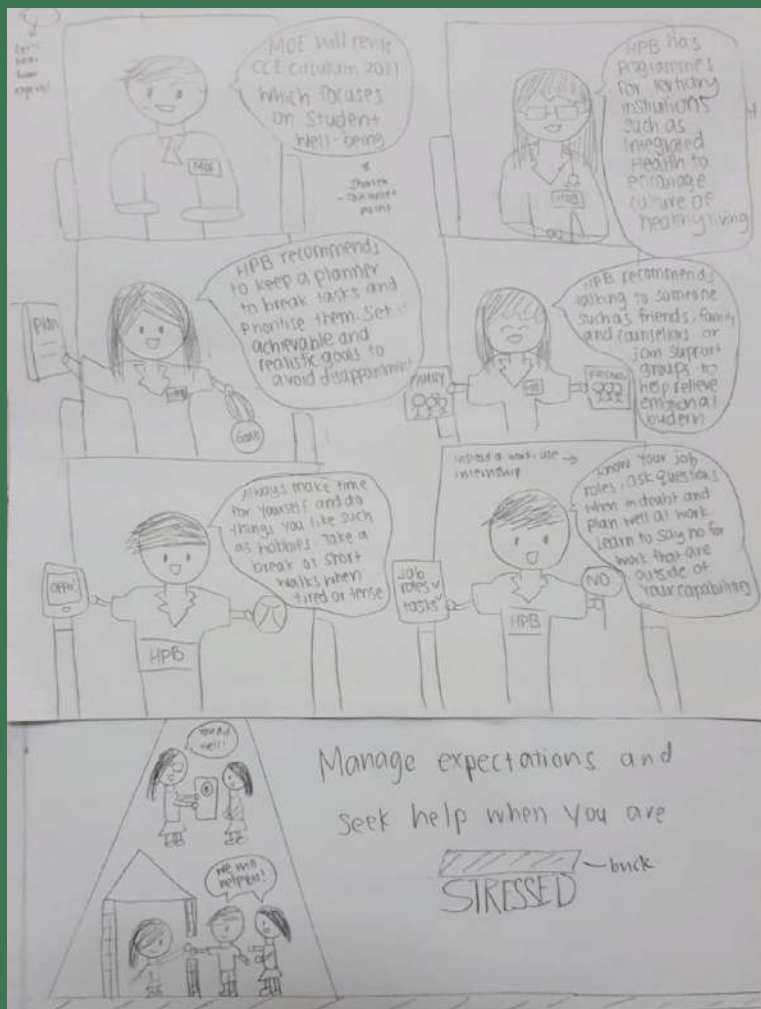 MOE will revise
CCE Ciriculum 2021
which focuses
on Student
Well-being
MOE
* Shorten
HPB has
Programmes
for tertiary
institutions
such as
Integrated
Health to
encourage
culture of
healthy living
HPB
HPB recommends
to keep a planner
to break tasks and
Prioritise them. Set
achievable and
realistic goals to
avoid disappointment
Plan
HPB
Goals
HPB recommends
talking to someone
such as friends, family
and counsellors or
join support
groups to
help relieve
emotional
budern
FAMILY
HPB
FRIENDS
Always make time
for yourself and do
things you like such
as hobbies. Take a
break or short
walks when
tired or tense
HPB
Instead of work, use →
internship
Know your job
roles, ask questions
when in doubt and
plan well at work.
Learn to say no for
work that are
outside of
your capability
Job
roles ✓
tasks ✓
NO
HPB
You did
well!
We will
help you!
Manage expectations and
seek help when you are
brick
STRESSED